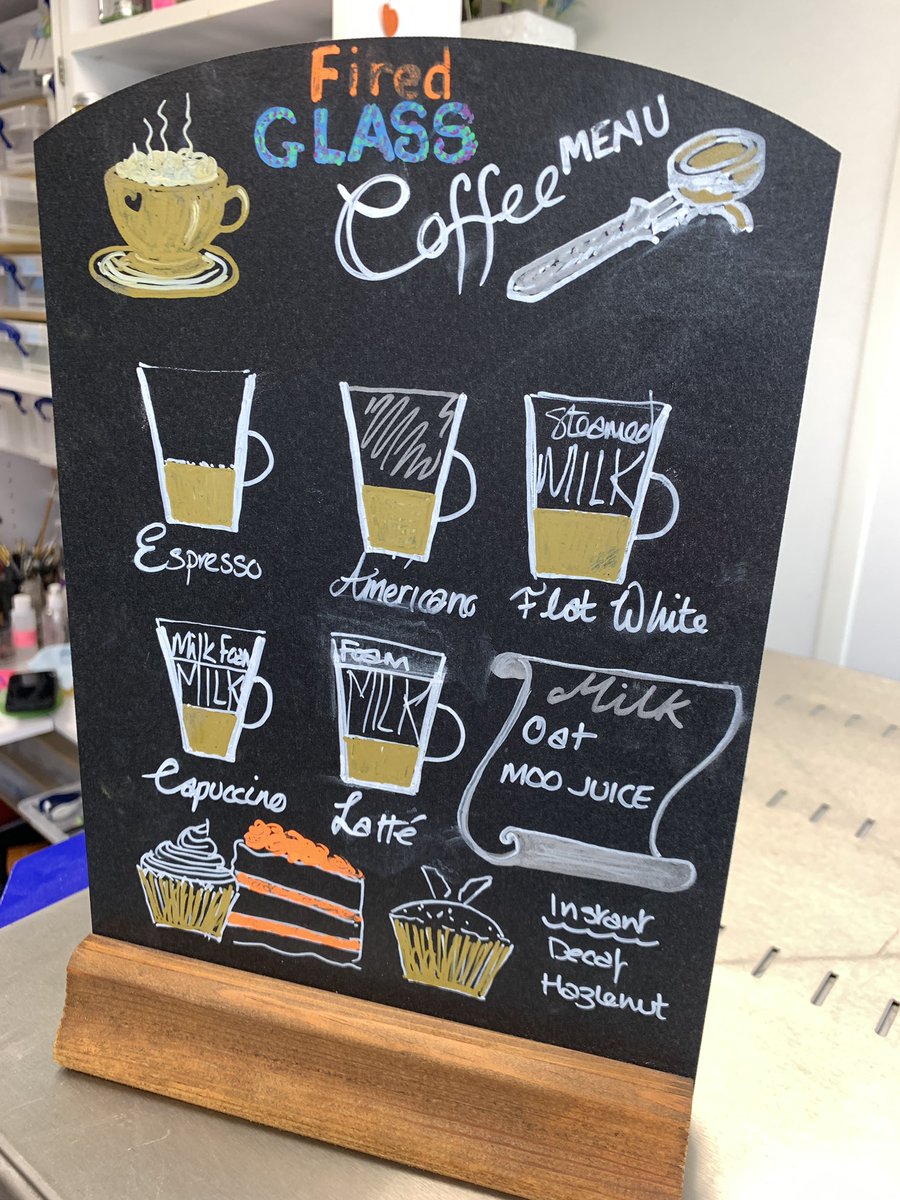 Fired
GLASS
Coffee MENU
Espresso
Americano
Steamed
MILK
Flat White
Milk Foam
MILK
Capuccino
Foam
MILK
Latté
Milk
Oat
MOO JUICE
Instant
Decaf
Hazlenut